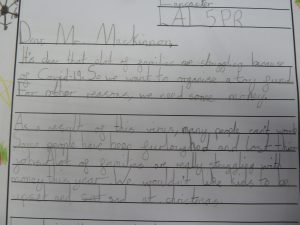 Lancaster
LA1 5PR
Dear Mr Mackinnon
It's due that alot of families are struggling because
of Covid-19. So we want to organise a toy fund
For other reasons, we need some money.
As a result of this virus, many people can't work
Some people have been furloughed and lost their
jobs. Alot of families are really struggling with
money this year. We wouldn't like kids to be
upset and sad at christmas.